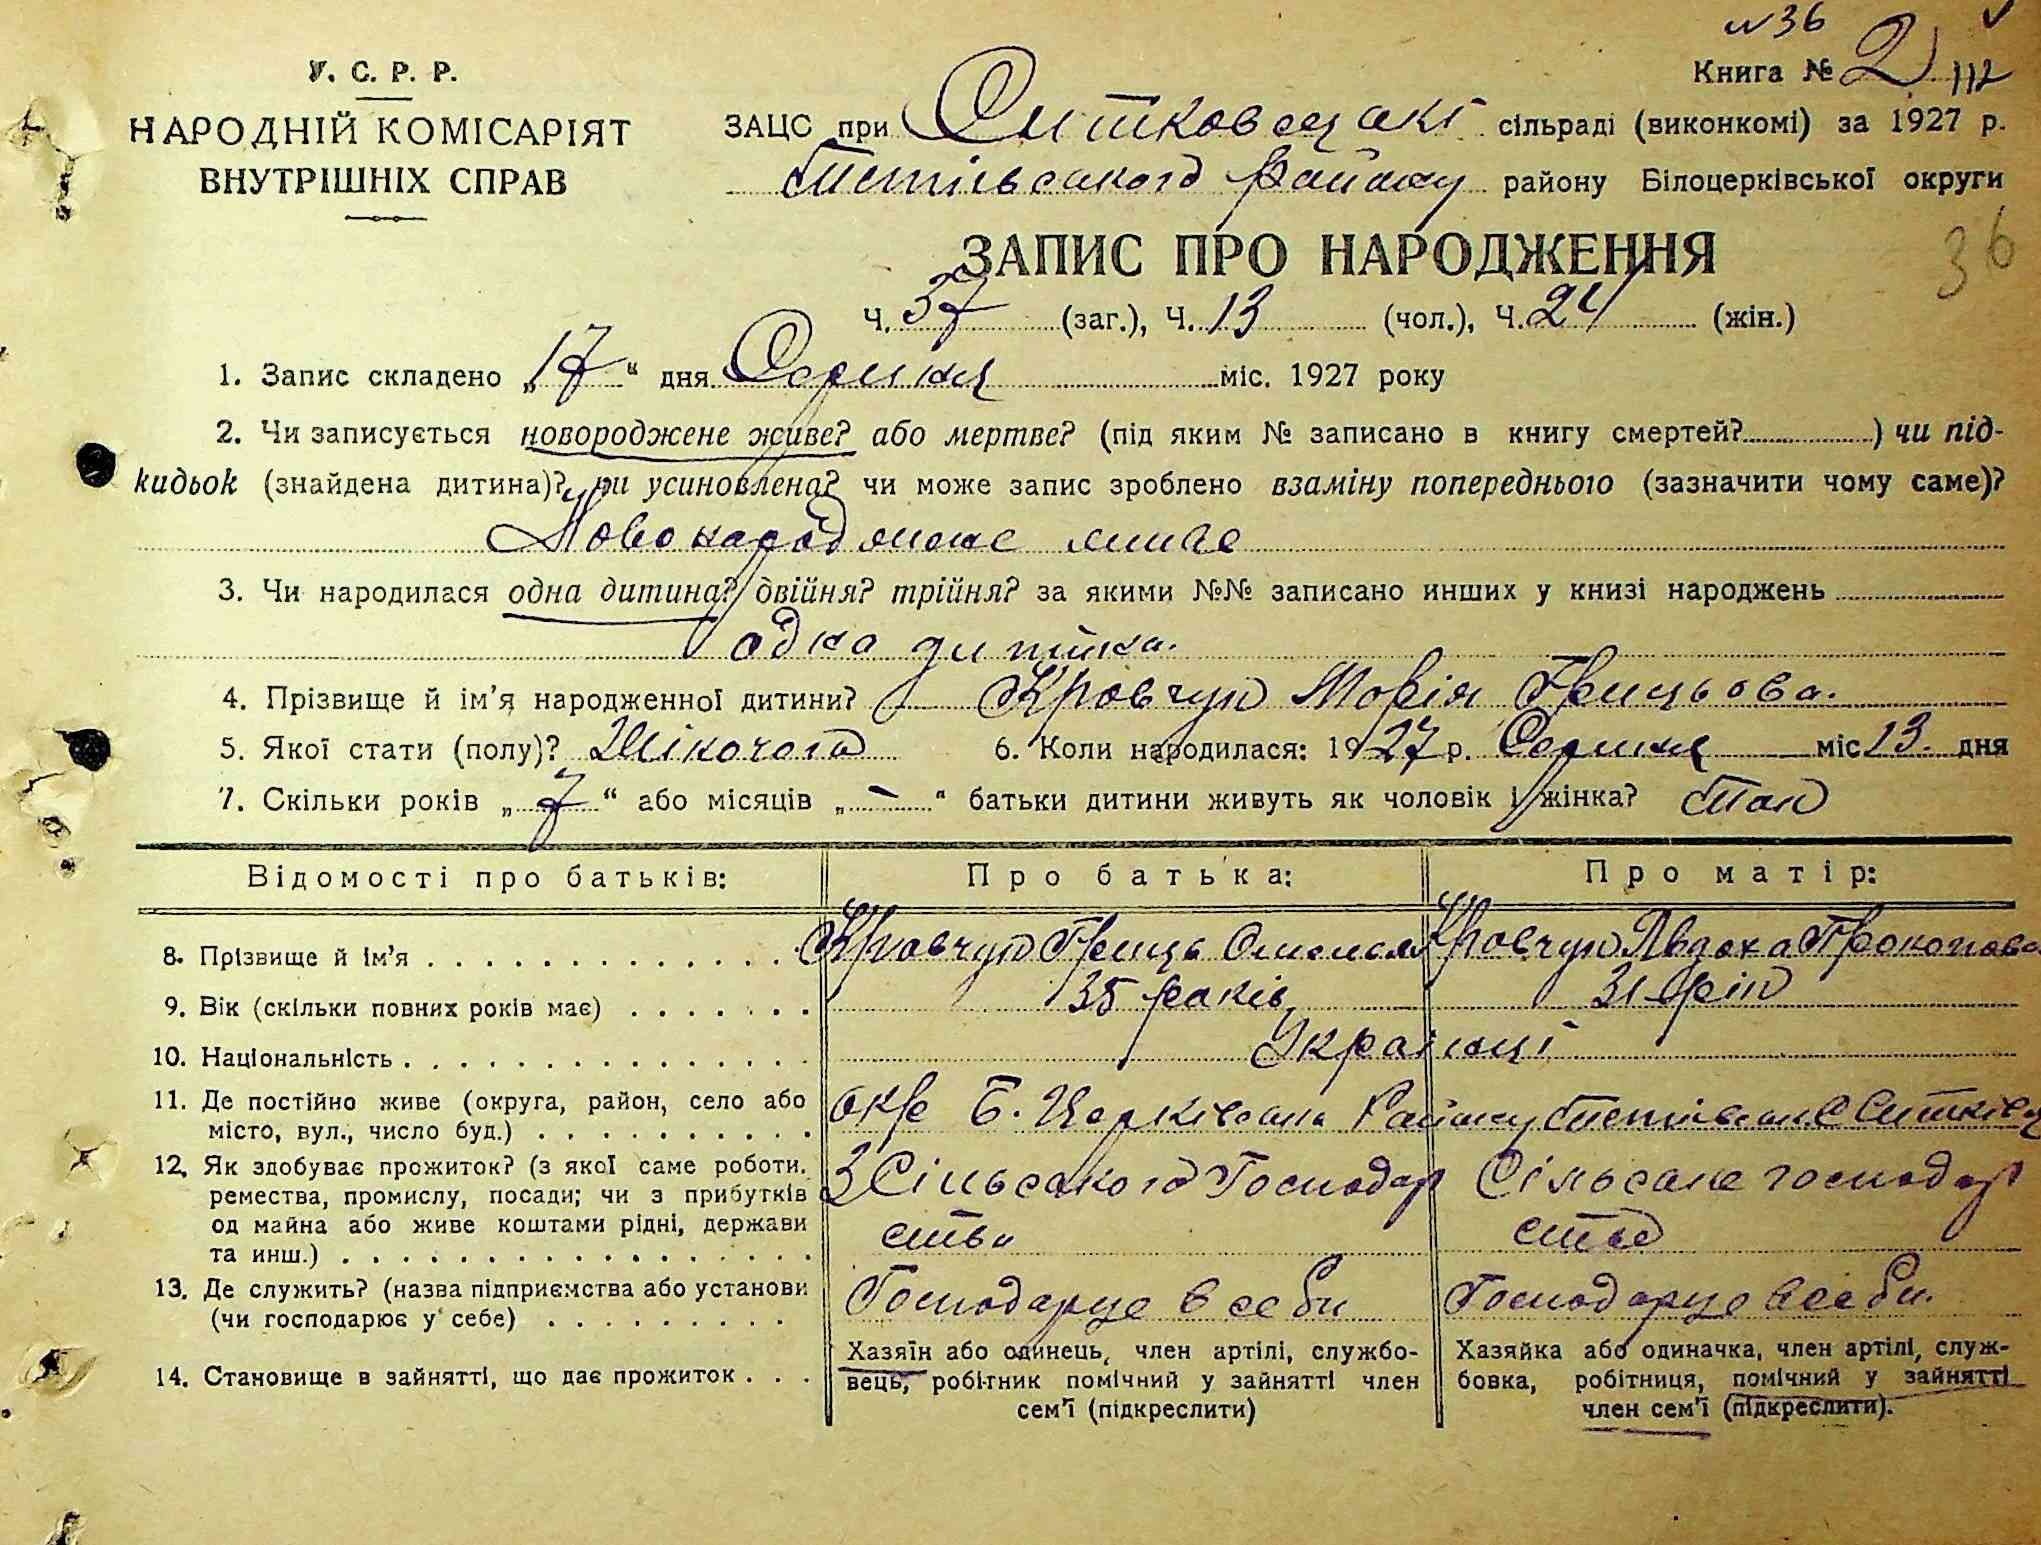 №36
У. С. Р. Р.
Книга № 2 112
НАРОДНІЙ КОМІСАРІЯТ
ВНУТРІШНІХ СПРАВ
ЗАЦС при Ситковецькі сільраді (виконкомі) за 1927 р.
Тетіевського району району Білоцерківської округи
36
ЗАПИС ПРО НАРОДЖЕННЯ
Ч. 37 (заг.), Ч. 13 (чол.), Ч. 24 (жін.)
1. Запис складено „17“ дня Серпня міс. 1927 року
2. Чи записується новороджене живе? або мертве? (під яким № записано в книгу смертей?) чи під-
кидьок (знайдена дитина)? чи усиновлена? чи може запис зроблено взаміну попереднього (зазначити чому саме)?
живе
3. Чи народилася одна дитина? двійня? трійня? за якими №№ записано инших у книзі народжень
одна дитина.
4. Прізвище й ім'я народженної дитини? Кровчук Морія Грицьова.
5. Якої стати (полу)? Жіночого 6. Коли народилася: 1927 р. Серпня міс 13. дня
7. Скільки років „7“ або місяців „-“ батьки дитини живуть як чоловік і жінка? Так
Відомості про батьків: Про батька: Про матір:
8. Прізвище й ім'я Кровчук Гриць Омельян Кровчук Явдоха Прокопова
9. Вік (скільки повних років має) 35 років 31 рік
10. Національність Українці
11. Де постійно живе (округа, район, село або
місто, вул., число буд.) окр Б. Церківська Району Тетівськ. С Ситківці
12. Як здобуває прожиток? (з якої саме роботи.
ремества, промислу, посади; чи з прибутків
од майна або живе коштами рідні, держави
та инш.)
З Сільського Господар
ства
Сільське господар
ство
13. Де служить? (назва підприємства або установи
(чи господарює у себе)
Господарце в себи Господарце в себи.
14. Становище в зайнятті, що дає прожиток
Хазяїн або одинець, член артілі, службо-
вець, робітник помічний у зайнятті член
сем'ї (підкреслити)
Хазяйка або одиначка, член артілі, служ-
бовка, робітниця, помічний у зайнятті
член сем'ї (підкреслити).